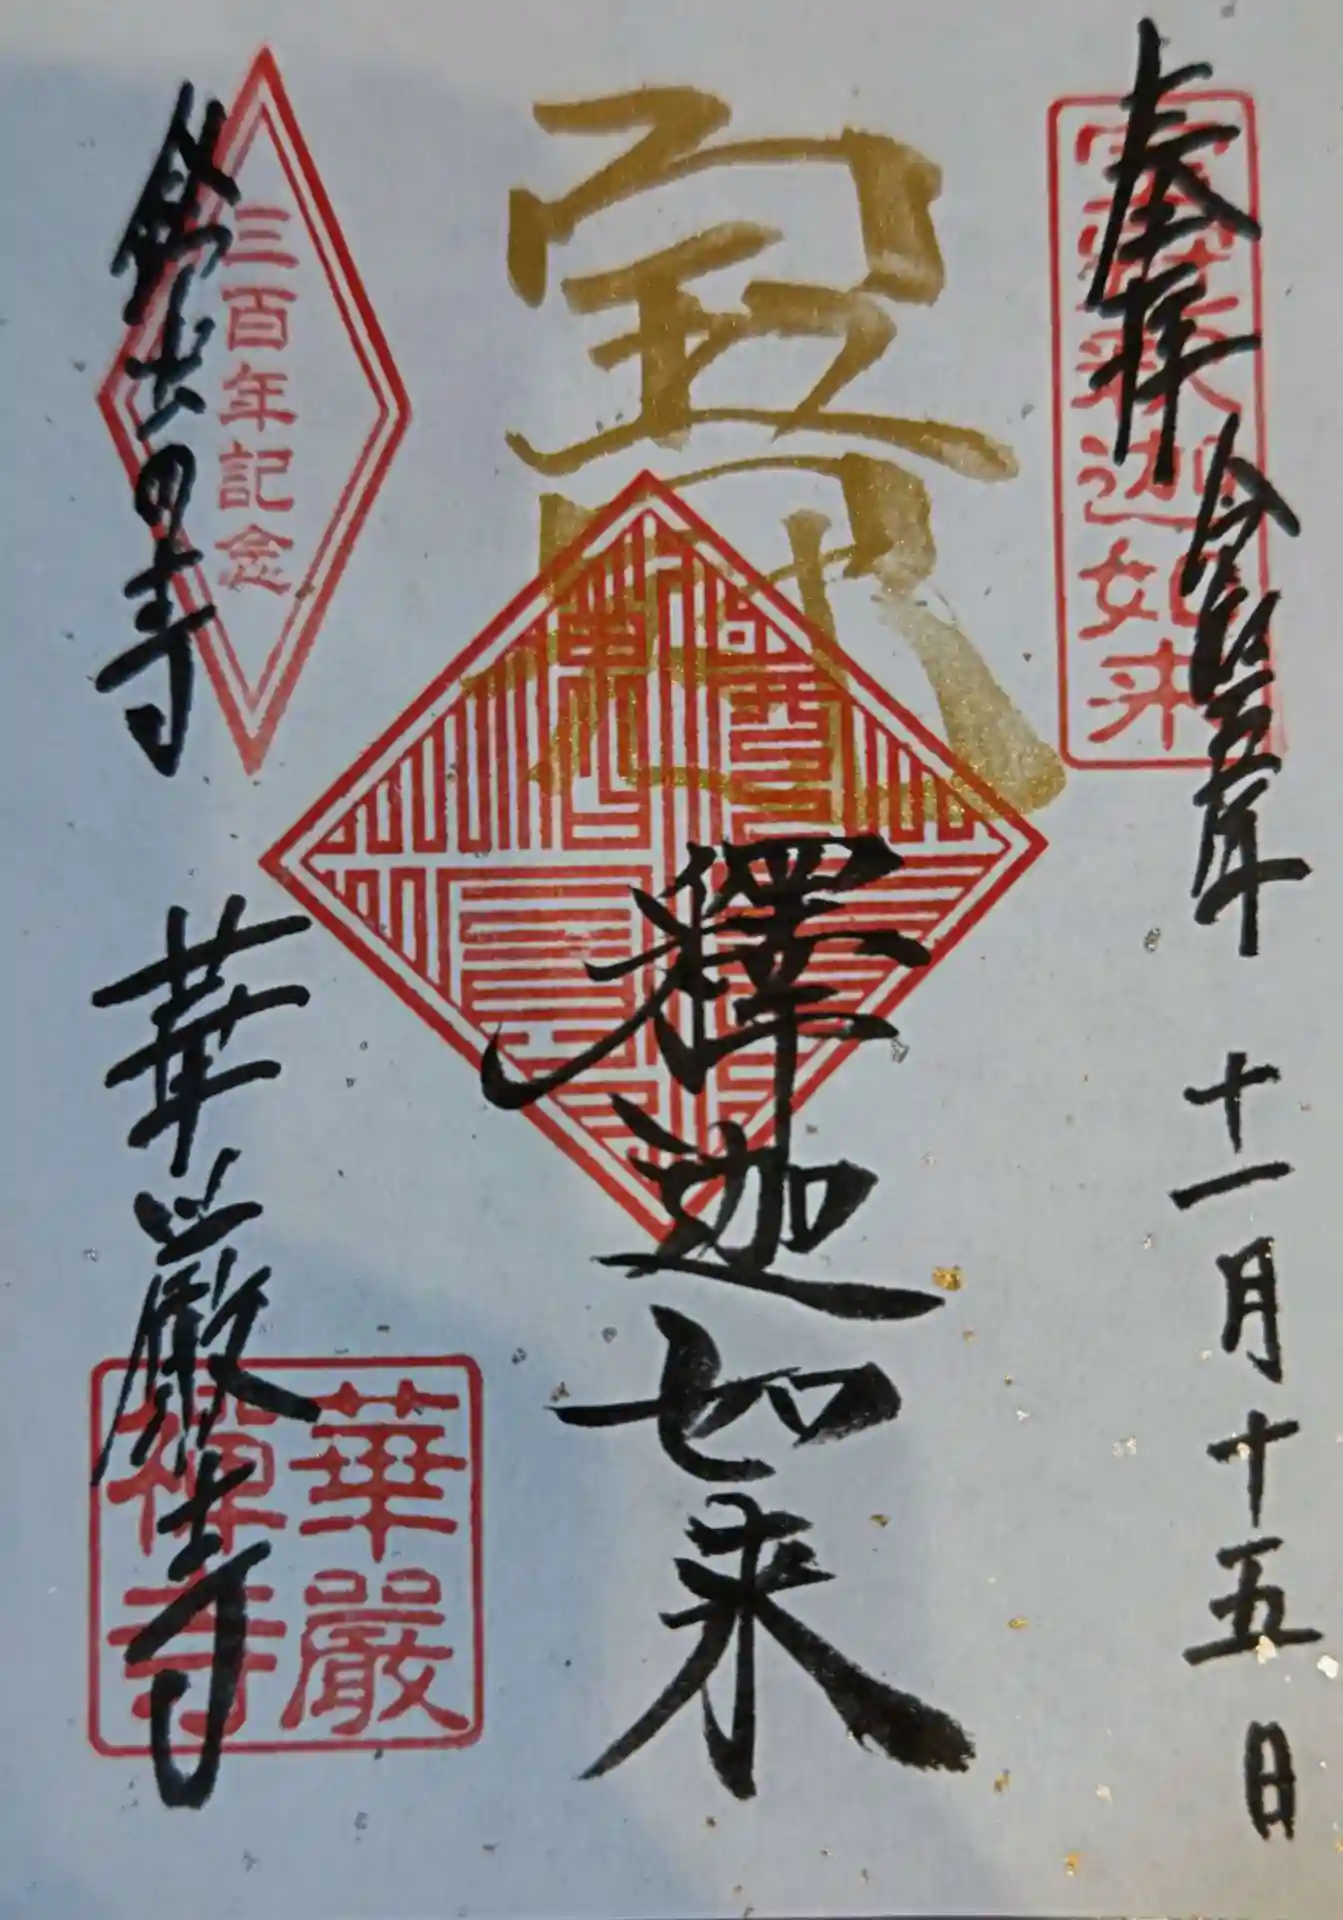 奉拝
令和五年
十一月十五日
宝冠釈迦如来
宝冠
釋迦如来
三百年記念
華厳寺
華嚴
禅寺